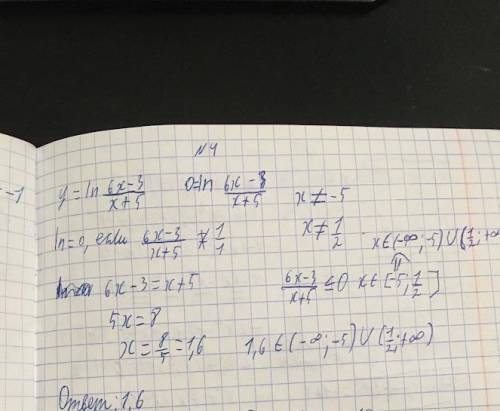 -1
N4
y = ln (6x-3)/(x+5) 0=ln (6x-3)/(x+5) x ≠ -5
x ≠ 1/2
ln=0, если (6x-3)/(x+5) = 1/1 x∈(-∞;-5)∪(1/2;+∞
6x-3=x+5 (6x-3)/(x+5) ≤0 x∈[-5;1/2]
5x=8
x=8/5=1,6 1,6 ∈(-∞;-5)∪(1/2;+∞)
Ответ: 1,6